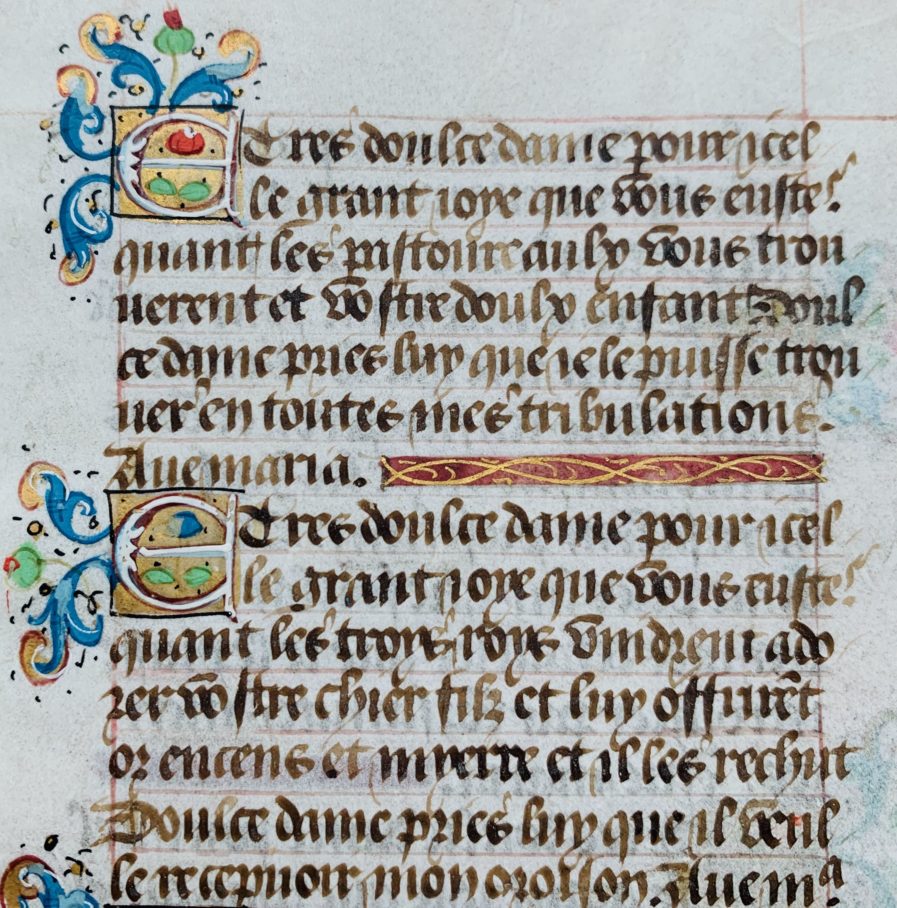 E Tres doulce dame pour icel
le grant ioye que vous eustes
quant les pastoureaulx vous trou
uerent et vostre doulx enfant Doul
ce dame pries luy que ie le puisse trou
uer en toutes mes tribulations.
Aue maria.
E Tres doulce dame pour icel
le grant ioye que vous eustes
quant les troys roys vindrent ado
rer vostre chier filz et luy offrirēt
or encens et mirre et il les rechut
Doulce dame pries luy que il veul
le recepuoir mon oroison. Aue mᵃ